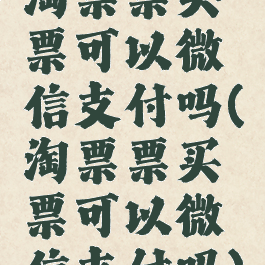 淘票票买
票可以微
信支付吗(
淘票票买
票可以微
信支付吗)